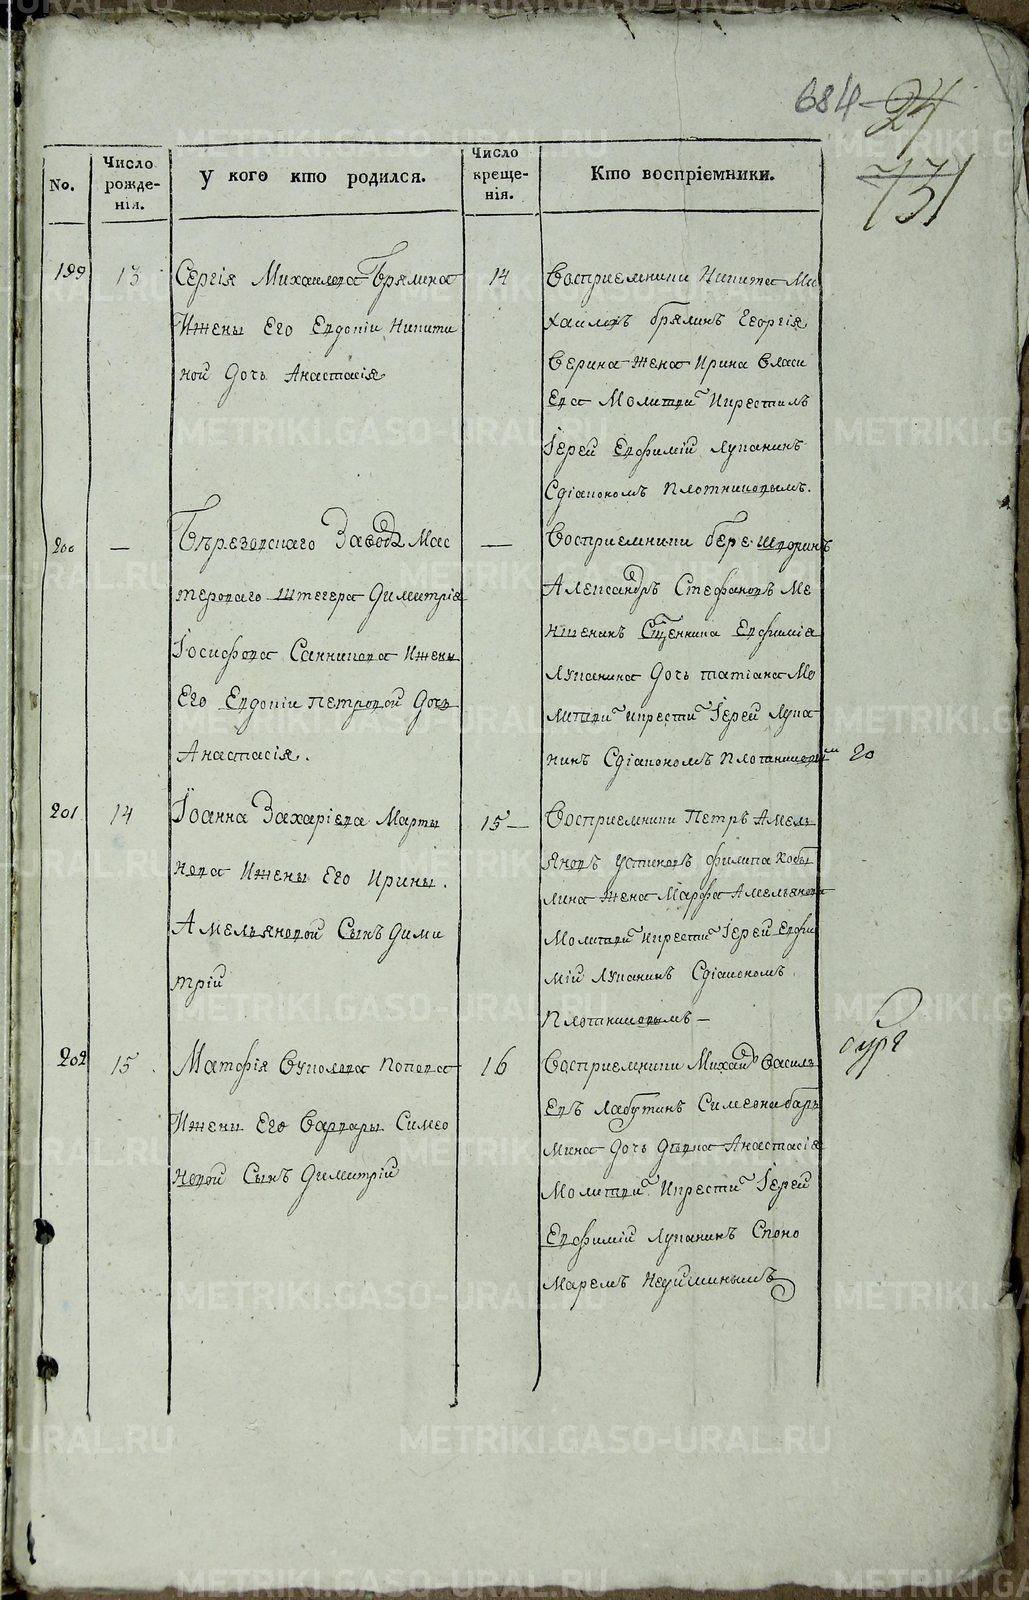 684 24
731
No.
Число рожденія.
У кого кто родился.
Число крещенія.
Кто воспріемники.
199 13
Сергія Михаилова Брялина
Ижены Его Евдокіи Никити
ной Дочь Анастасія
14
Восприемники Никита Ми
хаиловъ брялинъ Георгія
Верина Жена Ирина Власи
Ева Молитви Икрестилъ
Іерей Евфимій Лупанинъ
Сдіакономъ Плотниковымъ.
200 —
Бѣрезовскаго Завода Мас
тероваго Штегера Димитрія
Іосифова Санникова Ижены
Его Евдокіи Петровой Дочь
Анастасія.
—
Восприемники бере
Александръ Стефановъ Ме
ншенинъ Сщенника Евфиміа
Лупанина Дочь татіана Мо
литви икрести Іерей Лупа
нинъ Сдіакономъ Плотниковым
20
201 14
Іоанна Захаріева Марты
нова Ижены Его Ирины.
Амельяновой Сынъ Дими
трій
15 —
Восприемники Петръ Амель
яновъ устиновъ филипа Кобы
лина жена Марфа Амельянова
Молитви Икрести Іерей Евфи
мій Лупанинъ Сдіакономъ
Плотниковымъ —
202 15
Матфія Вуколова Попова
Ижени Его Варвары Симео
новой Сынъ Димитрій
16
Восприемники Михаилъ Василь
Евъ Лабутинъ Симеона бар
мина Дочь Дѣвка Анастасія
Молитви Икрести Іерей
Евфимій Лупанинъ Споно
Маремъ Неуйминымъ
METRIKI.GASO-URAL.RU